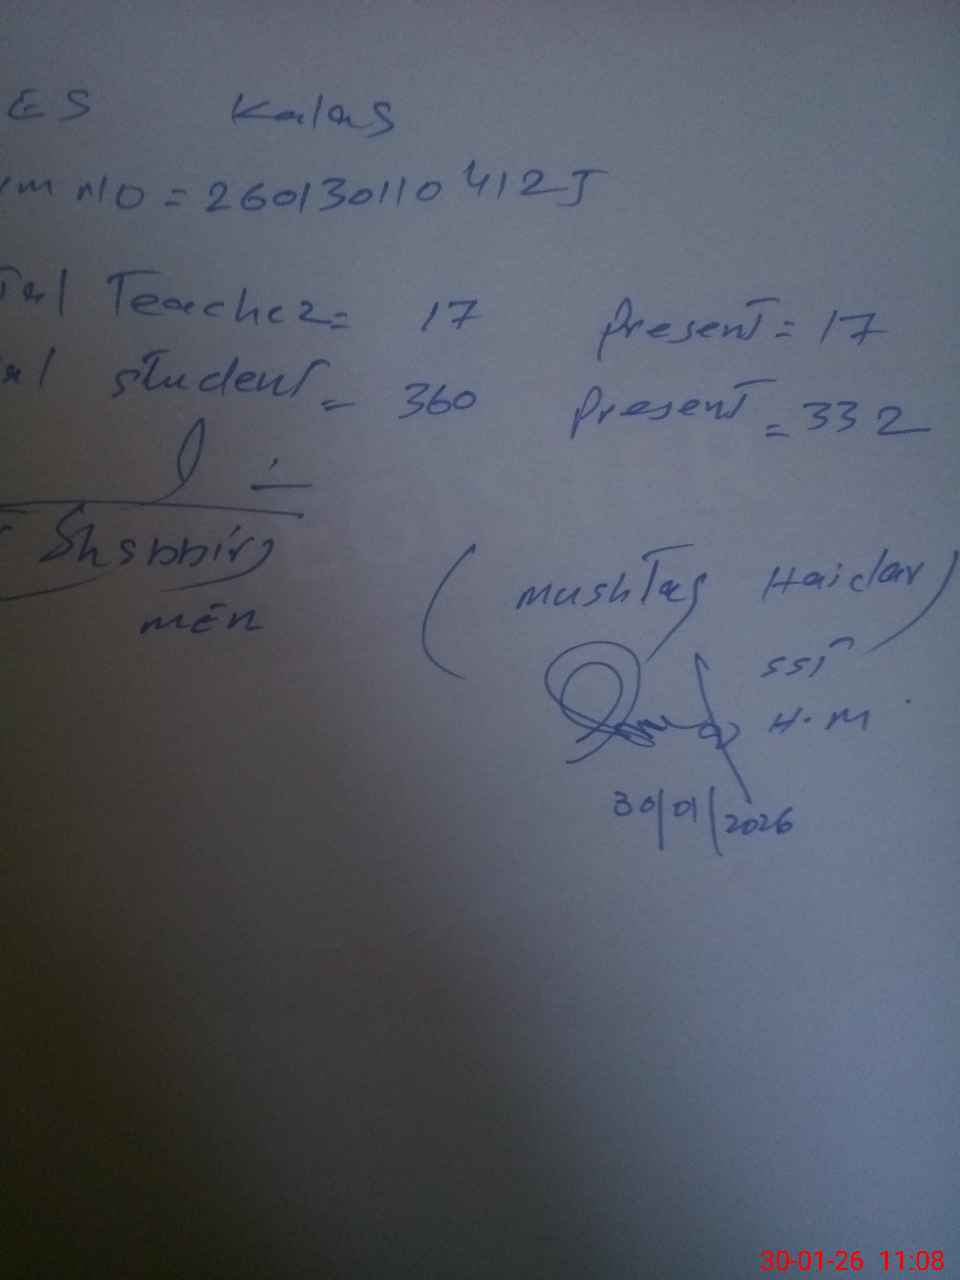 ES Kalas
m no = 260130110412J
Teacher = 17 Present = 17
student = 360 Present = 332
Shabbir
men
(Mushtaq Haidar)
SST
H.M
30/01/2026
30-01-26 11:08